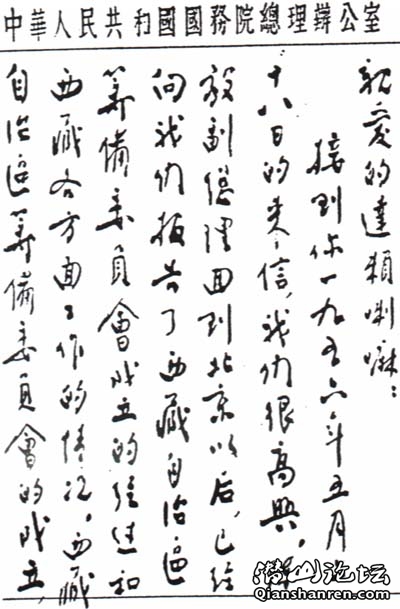 中華人民共和國國務院總理辦公室
親愛的達賴喇嘛：
接到你一九五六年五月
十八日的来信，我们很高興。陳
毅副總理回到北京以后，已经
向我们报告了西藏自治區
筹備委員會成立的经过和
西藏各方面工作的情况。西藏
自治區筹備委員會的成立，
潜山论坛
Qianshanren.com